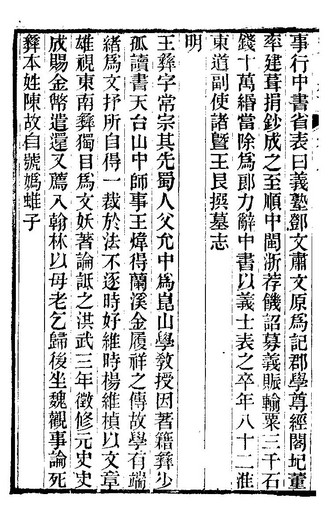 事行中書省表曰義塾鄧文肅文原爲記郡學尊經閣圮董
率建葺捐鈔成之至順中閩浙荐饑詔募義賑輸粟三千石
錢十萬緡當除爲郎力辭中書以義士表之卒年八十二淮
東道副使諸暨王艮撰墓志
明
王彝字常宗其先蜀人父允中爲崑山學敎授因著籍彝少
孤讀書天台山中師事王煒得蘭溪金履祥之傳故學有端
緒爲文抒所自得一裁於法不逐時好維時楊維楨以文章
雄視東南彝獨目爲文妖著論詆之洪武三年徵修元史史
成賜金幣遣還又薦入翰林以母老乞歸後坐魏觀事論死
彝本姓陳故自號嬀蜼子